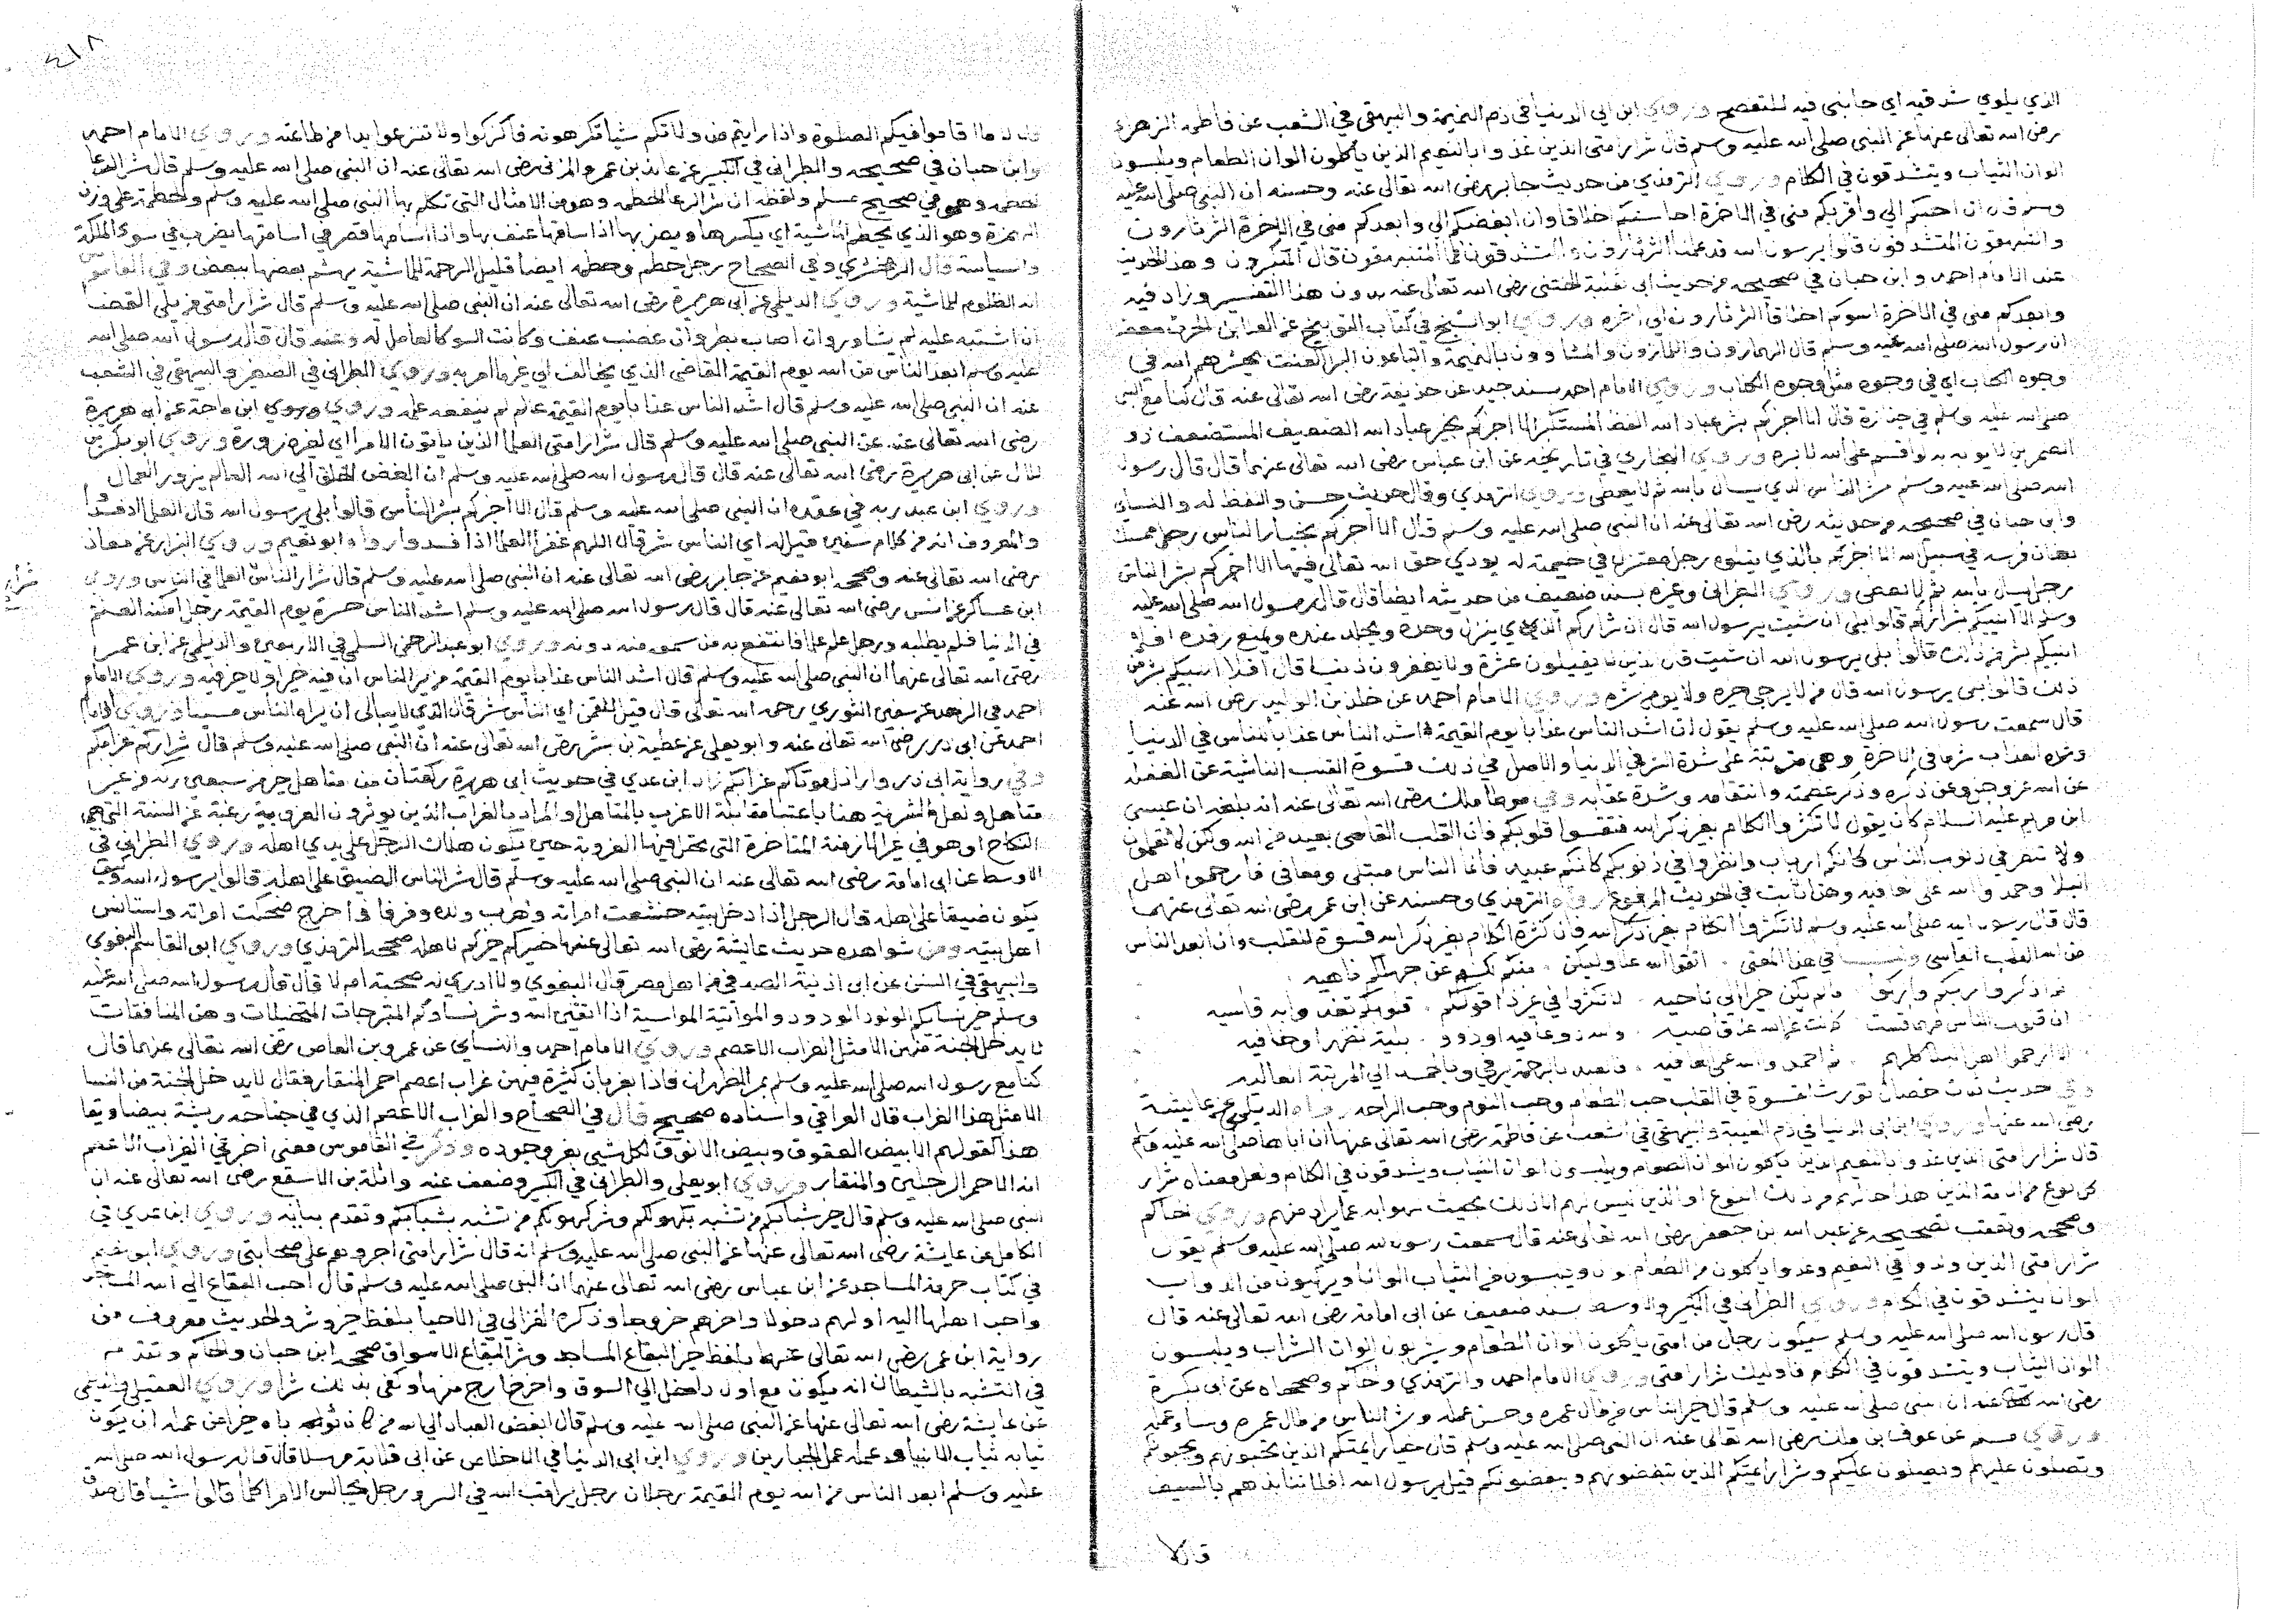 الذي يلوي شدقيه اي جانبي فيه للتفصح وروي ابن ابي الدنيا في ذم النميمة والبيهقي في الشعب عن فاطمة الزهراء
رضي الله تعالى عنها عن النبي صلى الله عليه وسلم قال شرار امتي الذين غذوا بالنعيم الذين ياكلون الوان الطعام ويلبسون
الوان الثياب ويتشدقون في الكلام وروي الترمذي من حديث جابر رضي الله تعالى عنه وحسنه ان النبي صلى الله عليه
وسلم قال ان احبكم الي واقربكم مني في الاخرة احاسنكم اخلاقا وان ابغضكم الي وابعدكم مني في الاخرة الثرثارون
والمتفيهقون المتشدقون قالوا يرسول الله قد علمنا الثرثارون والمتشدقون فما المتفيهقون قال المتكبرون وهذا الحديث
عند الامام احمد وابن حبان في صحيحه من حديث ابي ثعلبة الخشني رضي الله تعالى عنه بدون هذا التفسير وزاد فيه
وابعدكم مني في الاخرة اسوكم اخلاقا الثرثارون الى اخره وروي ابو الشيخ في كتاب التوبيخ عن العلا بن الحرث
ان رسول الله صلى الله عليه وسلم قال الهمازون واللمازون والمشاوون بالنميمة والباغون البرا العنت يحشرهم الله في
وجوه الكلاب اي في وجوه مثل وجوه الكلاب وروي الامام احمد بسند جيد عن حذيفة رضي الله تعالى عنه قال كنا مع النبي
صلى الله عليه وسلم في جنازة قال الا اخبركم بشر عباد الله الفظ المستكبر الا اخبركم بخير عباد الله الضعيف المستضعف ذو
الطمرين لا يوبه به لو اقسم على الله لابره وروي البخاري في تاريخه عن ابن عباس رضي الله تعالى عنهما قال قال رسول
الله صلى الله عليه وسلم شر الناس الذي يسال بالله ثم لا يعطي وروي الترمذي وقال حديث حسن واللفظ له والنساي
وابن حبان في صحيحه من حديثه رضي الله تعالى عنه ان النبي صلى الله عليه وسلم قال الا اخبركم بخيار الناس رجل ممسك
بعنان فرسه في سبيل الله الا اخبركم بالذي يتلوه رجل معتزل في غنيمة له يودي حق الله تعالى فيها الا اخبركم بشر الناس
رجل يسال بالله ثم لا يعطي وروي الطبراني وغيره بسند ضعيف من حديثه ايضا قال قال رسول الله صلى الله عليه
وسلم الا انبيكم بشراركم قالوا بلى ان شيت يرسول الله قال ان شراركم الذي ينزل وحده ويجلد عبده ويمنع رفده افلا
انبيكم بشر من ذلك قالوا بلى يرسول الله ان شيت قال الذين لا يقيلون عثرة ولا يغفرون ذنبا قال افلا انبيكم بشر من
ذلك قالوا بلى يرسول الله قال من لا يرجى خيره ولا يومن شره وروي الامام احمد عن خالد بن الوليد رضي الله عنه
قال سمعت رسول الله صلى الله عليه وسلم يقول ان اشد الناس عذابا يوم القيمة اشد الناس عذابا للناس في الدنيا
وشدة العذاب شرها في الاخرة وهي مترتبة على شدة الشر في الدنيا والاصل في ذلك قسوة القلب الناشية عن الغفلة
عن الله عز وجل وعن ذكره وذكر عظمته وانتقامه وشدة عقابه وفي موطا مالك رضي الله تعالى عنه انه بلغه ان عيسى
ابن مريم عليه السلام كان يقول لا تكثروا الكلام بغير ذكر الله فتقسوا قلوبكم فان القلب القاسي بعيد من الله ولكن لا تعلمون
ولا تنظروا في ذنوب الناس كانكم ارباب وانظروا في ذنوبكم كانكم عبيد فانما الناس مبتلى ومعافى فارحموا اهل
البلا واحمدوا الله على عافيه وهذا ثابت في الحديث المرفوع رواه الترمذي وحسنه عن ابن عمر رضي الله تعالى عنهما
قال قال رسول الله صلى الله عليه وسلم لا تكثروا الكلام بغير ذكر الله فان كثرة الكلام بغير ذكر الله قسوة للقلب وان ابعد الناس
من الله القلب القاسي في هذا المعنى اتقوا الله عن جهلكم ناهيه
ان قلوب الناس قست كانت عن الله قاصيه
وفي حديث ثلاث خصال تورث القسوة في القلب حب الطعام وحب النوم وحب الراحه رواه الديلمي عن عايشة
رضي الله عنها وروي ابن ابي الدنيا في ذم الغيبة والبيهقي في الشعب عن فاطمة رضي الله تعالى عنها ان اباها صلى الله عليه وسلم
قال شرار امتي الذين غذوا بالنعيم الذين ياكلون الوان الطعام ويلبسون الوان الثياب ويتشدقون في الكلام ولعل معناه شرار
وصححه وتعقب تصحيحه عن عبد الله بن جعفر رضي الله تعالى عنه قال سمعت رسول الله صلى الله عليه وسلم يقول
شرار امتي الذين ولدوا في النعيم وغذوا به ياكلون من الطعام الوانا ويلبسون من الثياب الوانا ويركبون من الدواب
الوانا يتشدقون في الكلام وروي الطبراني في الكبير والاوسط بسند ضعيف عن ابي امامة رضي الله تعالى عنه قال
قال رسول الله صلى الله عليه وسلم سيكون رجال من امتي ياكلون الوان الطعام ويشربون الوان الشراب ويلبسون
الوان الثياب ويتشدقون في الكلام فاوليك شرار امتي وروي الامام احمد والترمذي والحاكم وصححاه عن ابي بكرة
رضي الله تعالى عنه ان النبي صلى الله عليه وسلم قال خير الناس من طال عمره وحسن عمله وشر الناس من طال عمره وسا عمله
وروي مسلم عن عوف بن مالك رضي الله تعالى عنه ان النبي صلى الله عليه وسلم قال خيار ايمتكم الذين تحبونهم ويحبونكم
وتصلون عليهم ويصلون عليكم وشرار ايمتكم الذين تبغضونهم ويبغضونكم قيل يرسول الله افلا ننابذهم بالسيف
قال لا
قال لا ما اقاموا فيكم الصلوة واذا رايتم من ولاتكم شيا تكرهونه فاكرهوا ولا تنزعوا يدا من طاعته وروي الامام احمد
وابن حبان في صحيحه والطبراني في الكبير عن عايذ بن عمرو المزني رضي الله تعالى عنه ان النبي صلى الله عليه وسلم قال شر الرعا
الحطمه وهو في صحيح مسلم ولفظه ان شر الرعا الحطمه وهو من الامثال التي تكلم بها النبي صلى الله عليه وسلم والحطمة على وزن
الهمزة وهو الذي يحطم الماشية اي يكسرها ويضربها اذا سامها عنف بها واذا اسامها قصر في اسامتها يضرب في سوء الملكة
والسياسة قال الزمخشري وفي الصحاح رجل حطم وحطمه ايضا قليل الرحمة للماشية يهشم بعضها ببعض وفي القاموس
انه الظلوم للماشية وروي الديلمي عن ابي هريرة رضي الله تعالى عنه ان النبي صلى الله عليه وسلم قال شرار امتي من يلي القضا
ان اشتبه عليه لم يشاور وان اصاب بطر وان غضب عنف وكاتب السو كالعامل له وعنه قال قال رسول الله صلى الله
عليه وسلم ابعد الناس من الله يوم القيمة القاضي الذي يخالف الى غير ما امر به وروي الطبراني في الصغير والبيهقي في الشعب
عنه ان النبي صلى الله عليه وسلم قال اشد الناس عذابا يوم القيمة عالم لم ينفعه علمه وروي وروي ابن ماجة عن ابي هريرة
رضي الله تعالى عنه عن النبي صلى الله عليه وسلم قال شرار امتي العلما الذين ياتون الامرا اي لغير ضرورة وروي ابو بكر بن
لال عن ابي هريرة رضي الله تعالى عنه قال قال رسول الله صلى الله عليه وسلم ان ابغض الخلق الى الله العالم يزور العمال
وروي ابن عبد ربه في عقده ان النبي صلى الله عليه وسلم قال الا اخبركم بشر الناس قالوا بلى يرسول الله قال العلما اذا فسدوا
والمعروف انه من كلام سفين قيل له اي الناس شر قال اللهم غفرا العلما اذا فسدوا رواه ابو نعيم وروي البزار عن معاذ
رضي الله تعالى عنه وصححه ابو نعيم عن جابر رضي الله تعالى عنه ان النبي صلى الله عليه وسلم قال شرار الناس شرار العلما في الناس وروي
ابن عساكر عن انس رضي الله تعالى عنه قال قال رسول الله صلى الله عليه وسلم اشد الناس حسرة يوم القيمة رجل امكنه العلم
في الدنيا فلم يطلبه ورجل علم علما فانتفع به من سمعه منه دونه وروي ابو عبد الرحمن السلمي في الاربعين والديلمي عن ابن عمر
رضي الله تعالى عنهما ان النبي صلى الله عليه وسلم قال اشد الناس عذابا يوم القيمة من يرى الناس ان فيه خيرا ولا خير فيه وروي الامام
احمد في الزهد عن سفين الثوري رحمه الله تعالى قال قيل للقمن اي الناس شر قال الذي لا يبالي ان يراه الناس مسيا وروي الامام
احمد عن ابي ذر رضي الله تعالى عنه وابو يعلى عن عطية بن بشر رضي الله تعالى عنه ان النبي صلى الله عليه وسلم قال شراركم عزابكم
وفي رواية ابي ذر واراذل موتاكم عزابكم زاد ابن عدي في حديث ابي هريرة ركعتان من متاهل خير من سبعين ركعة من غير
متاهل ولعل الشرية هنا باعتبار مقابلة الاعزب بالمتاهل او المراد بالعزاب الذين يوثرون العزوبية رغبة عن السنة التي هي
النكاح او هو في غير الازمنة المتاخرة التي يختار فيها العزوبة حين يكون هلاك الرجل على يدي اهله وروي الطبراني في
الاوسط عن ابي امامة رضي الله تعالى عنه ان النبي صلى الله عليه وسلم قال شر الناس الضيق على اهله قالوا يرسول الله وكيف
يكون ضيقا على اهله قال الرجل اذا دخل بيته خشعت امراته وهرب ولده وفر فاذا خرج ضحكت امراته واستانس
اهل بيته ومن شواهده حديث عايشة رضي الله تعالى عنها خيركم خيركم لاهله صححه الترمذي وروي ابو القاسم البغوي
والبيهقي في السنن عن ابي اذينة الصدفي من اهل مصر قال البغوي ولا ادري له صحبة ام لا قال قال رسول الله صلى الله عليه
وسلم خير نسايكم الولود الودود المواتية المواسية اذا اتقين الله وشر نسايكم المتبرجات المتخيلات وهن المنافقات
لا يدخل الجنة منهن الا مثل الغراب الاعصم وروي الامام احمد والنساي عن عمرو بن العاص رضي الله تعالى عنهما قال
كنا مع رسول الله صلى الله عليه وسلم بمر الظهران فاذا بغربان كثيرة فيهن غراب اعصم احمر المنقار فقال لا يدخل الجنة من النسا
الا مثل هذا الغراب قال العراقي واسناده صحيح قال في الصحاح والغراب الاعصم الذي في جناحه ريشة بيضا ويقال
هذا كقولهم الابيض العقوق وبيض الانوق لكل شي يعز وجوده وذكر في القاموس معنى اخر في الغراب الاعصم
انه الاحمر الرجلين والمنقار وروي ابو يعلى والطبراني في الكبير وضعف عنه واثلة بن الاسقع رضي الله تعالى عنه ان
النبي صلى الله عليه وسلم قال خير شبابكم من تشبه بكهولكم وشر كهولكم من تشبه بشبابكم وتقدم بيانه وروي ابن عدي في
الكامل عن عايشة رضي الله تعالى عنها عن النبي صلى الله عليه وسلم انه قال شرار امتي اجروهم على صحابتي وروي ابو نعيم
في كتاب حرمة المساجد عن ابن عباس رضي الله تعالى عنهما ان النبي صلى الله عليه وسلم قال احب البقاع الى الله المساجد
واحب اهلها اليه اولهم دخولا واخرهم خروجا وذكره الغزالي في الاحيا بلفظ خير وشر والحديث معروف من
رواية ابن عمر رضي الله تعالى عنهما بلفظ خير البقاع المساجد وشر البقاع الاسواق صححه ابن حبان والحاكم وتقدم
في التشبه بالشيطان انه يكون مع اول داخل الى السوق واخر خارج منها وكفى بذلك شرا وروي العقيلي والديلمي
عن عايشة رضي الله تعالى عنها عن النبي صلى الله عليه وسلم قال ابغض العباد الى الله من كان ثوباه خيرا من عمله ان يكون
ثيابه ثياب الانبيا وعمله عمل الجبارين وروي ابن ابي الدنيا في الاخلاص عن ابي قلابة مرسلا قال قال رسول الله صلى الله
عليه وسلم ابعد الناس من الله يوم القيمة رجلان رجل يراقب الله في السر ورجل يجالس الامرا كلما قالوا شيا قال صدق